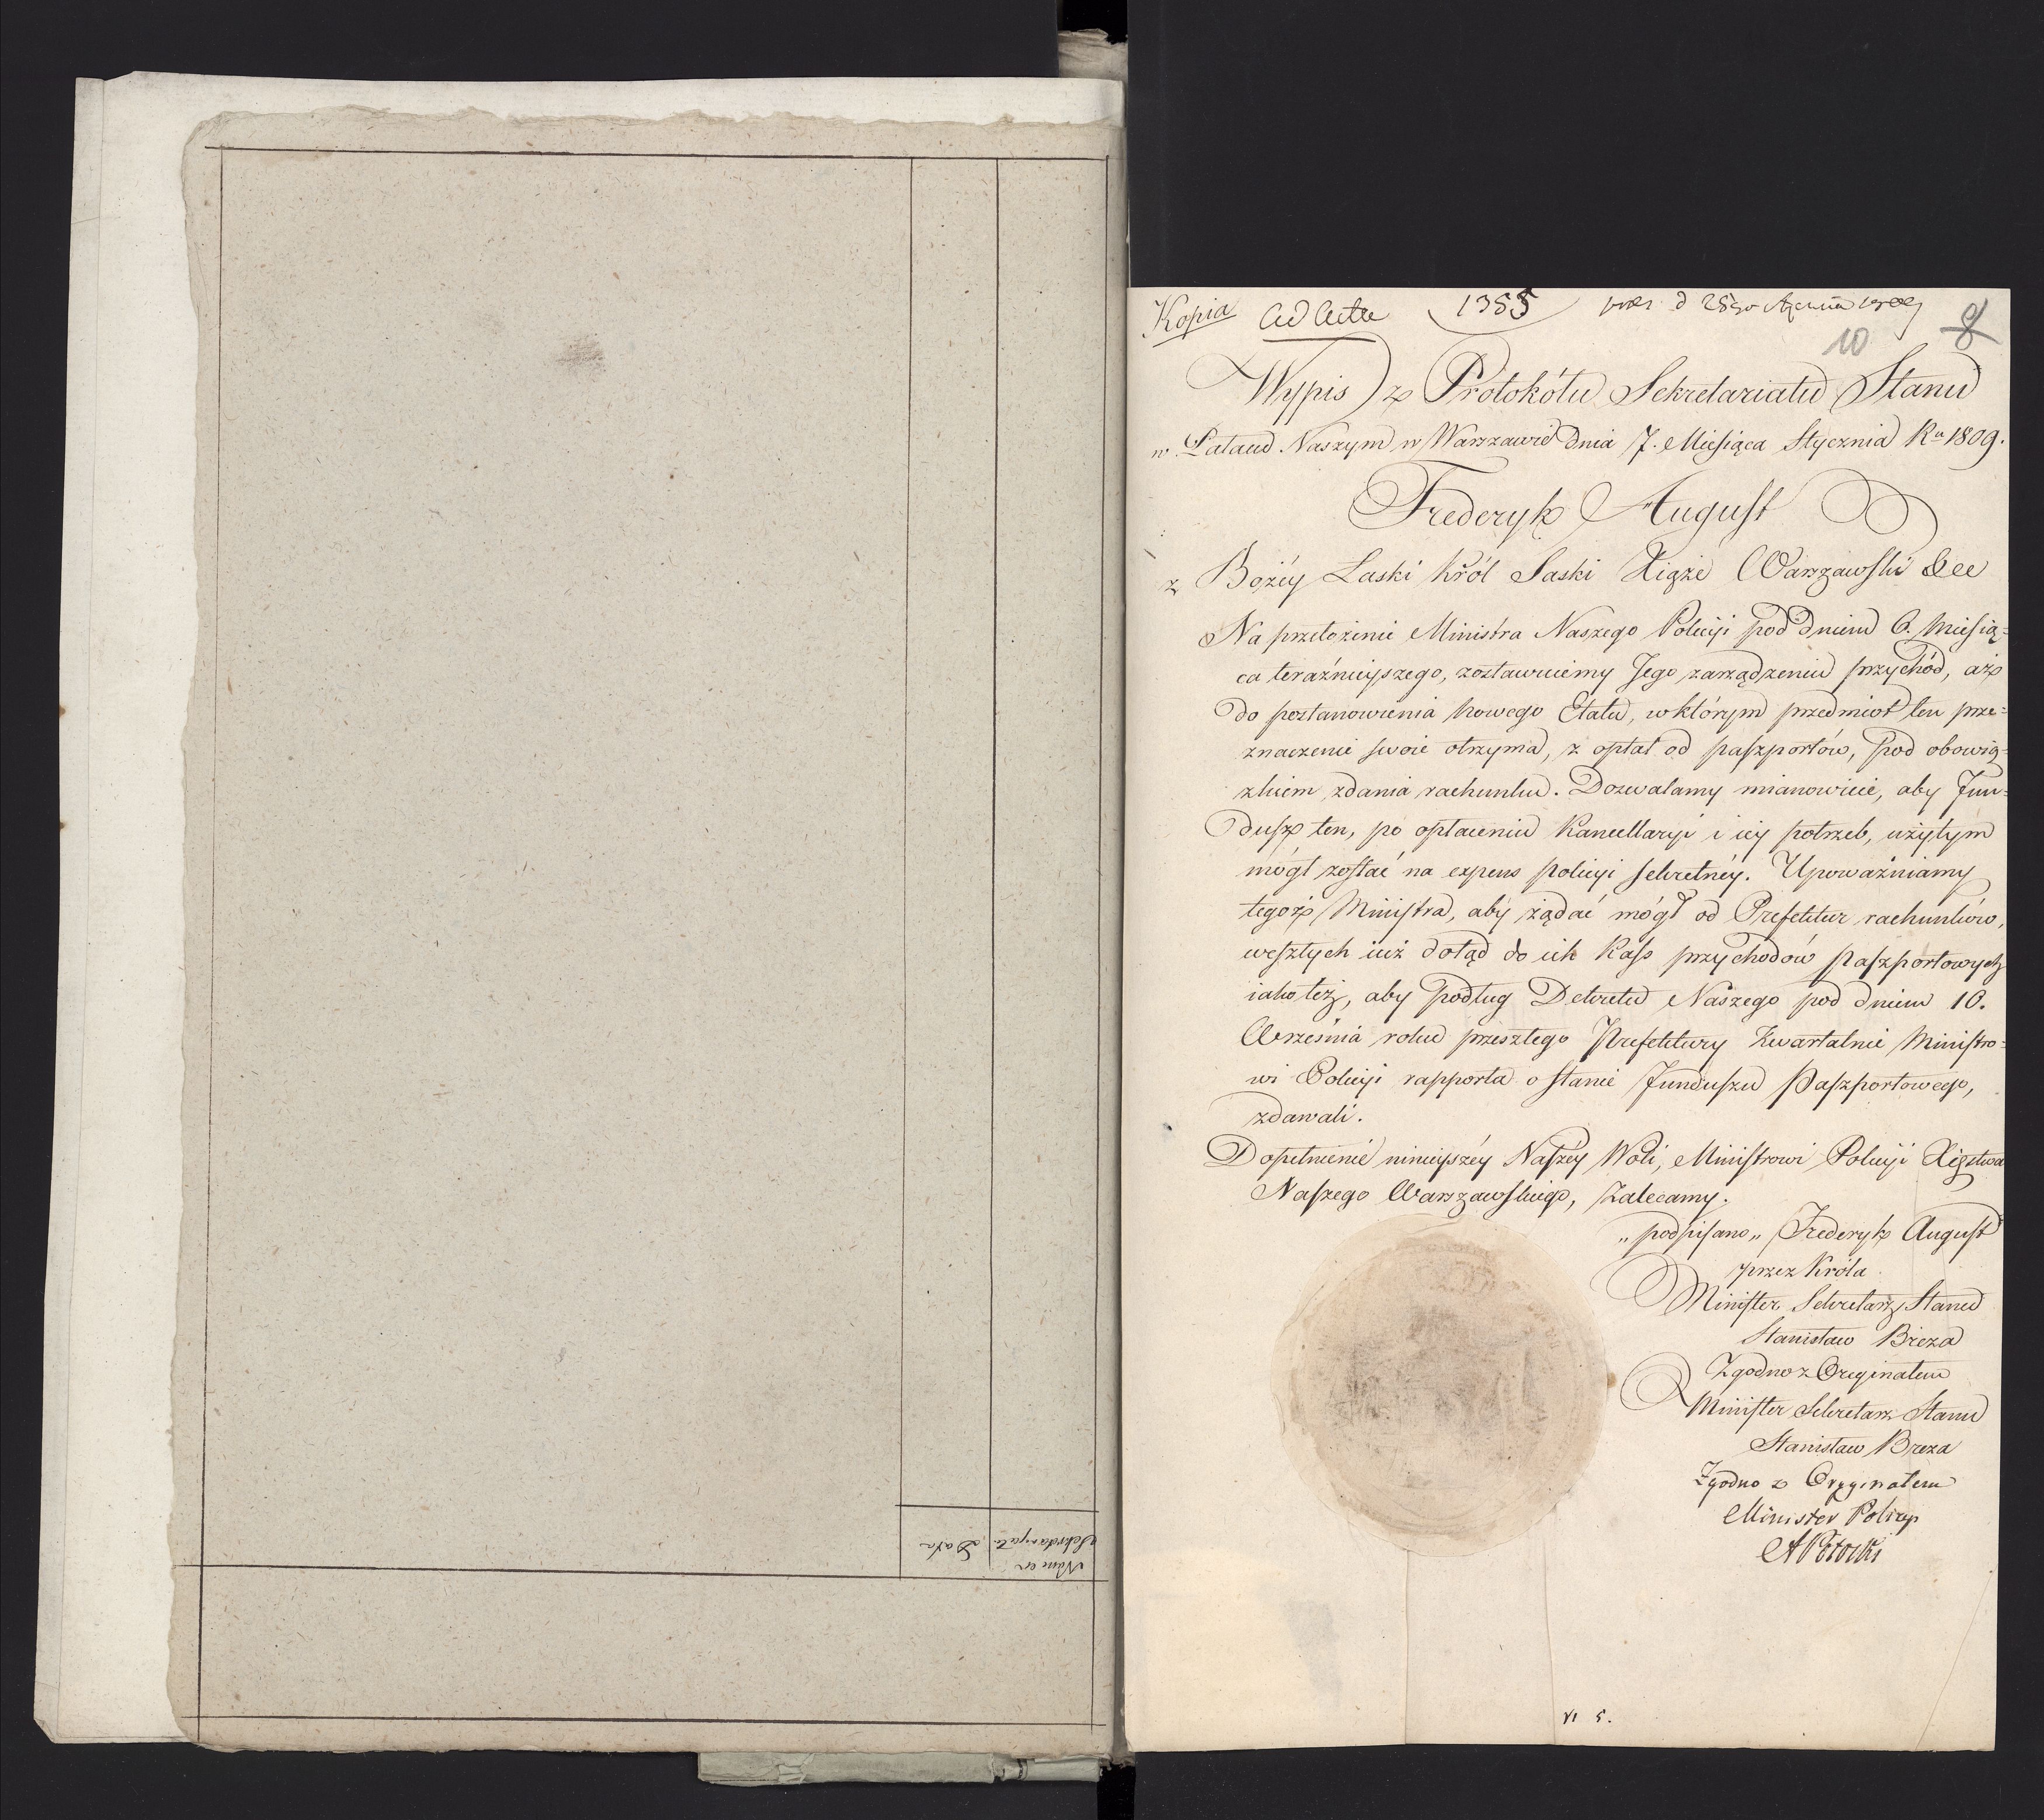 Numer
Sekretaryatu
Data
Kopia Ad Acta 1355
10 8
Wypis z Protokółu Sekretariatu Stanu
w Pałacu Naszym w Warszawie dnia 7. Miesiąca Stycznia Ru 1809.
Frederyk August
z Bożéy Łaski Król Saski Xiąże Warszawski &cc
Na przełożenie Ministra Naszego Policyi pod dniem 6. Miesią=
ca teraźnieyszego, zostawuiemy Jego zarządzeniu przychód, aż
do postanowienia nowego Etatu, w którym przedmiot ten prze=
znaczenie swoie otrzyma, z opłat od paszportów, pod obowią=
zkiem zdania rachunku. Dozwalamy mianowicie, aby Fun=
dusz ten, po opłaceniu Kancellaryi i iey potrzeb, użytym
mógł zostać na expens policyi sekretnéy. Upoważniamy
tegoż Ministra, aby żądać mógł od Prefektur rachunków,
weszłych iuż dotąd do ich Kass przychodów paszportowych
iako też, aby podług Dekretu Naszego pod dniem 16.
Września roku przeszłego Prefektury Kwartalnie Ministro=
wi Policyi rapporta o stanie funduszu paszportowego,
zdawali.
Dopełnienié ninieyszéy Naszéy Woli, Ministrowi Policyi Xięstwa
Naszego Warszawskiego, zalecamy.
„podpisano„ Frederyk August
przez Króla
Minister Sekretarz Stanu
Stanisław Breza
Zgodno z Oryginałem
Minister Sekretarz Stanu
Stanisław Breza
Zgodno z Oryginałem
Minister Policyi
A Potocki
VI 5.